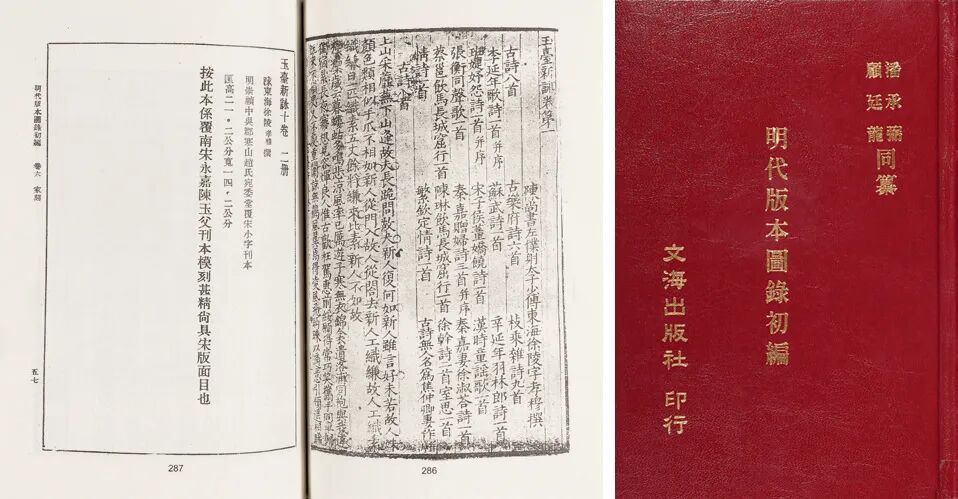 玉臺新詠卷第一
陳尚書左僕射太子少傅東海徐陵字孝穆撰
古詩八首 古樂府詩六首 枚乘雜詩九首
李延年歌詩一首并序 蘇武詩一首 辛延年羽林郎詩一首
班婕妤怨詩一首并序 宋子侯董嬌饒詩一首 漢時童謠歌一首
張衡同聲歌一首 秦嘉贈婦詩三首并序 秦嘉妻徐淑答詩一首
蔡邕飲馬長城窟行一首 陳琳飲馬長城窟行一首 徐幹詩二首 室思一首
情詩一首 繁欽定情詩一首 古詩無名人爲焦仲卿妻作
古詩八首
上山采蘼蕪下山逢故夫長跪問故夫新人復何如新人雖言好未若故人姝
顏色類相似手爪不相如新人從門入故人從閤去新人工織縑故人工織素
織縑日一匹織素五丈餘將縑來比素新人不如故
凜凜歲云暮螻蛄多鳴悲涼風率已厲遊子寒無衣錦衾遺洛浦同袍與我違
獨宿累長夜夢想見容輝良人惟古歡枉駕惠前綏願得常巧笑攜手同車歸
286
玉臺新詠十卷 二册
陳東海徐陵孝穆撰
明崇禎中吳郡寒山趙氏宛委堂覆宋小字刊本
匡高二一·二公分寬一四·二公分
按此本係覆南宋永嘉陳玉父刊本模刻甚精尙具宋版面目也
明代版本圖錄初編 卷六 家刻
五七
287
潘承弼
顧廷龍
同纂
明代版本圖錄初編
文海出版社 印行